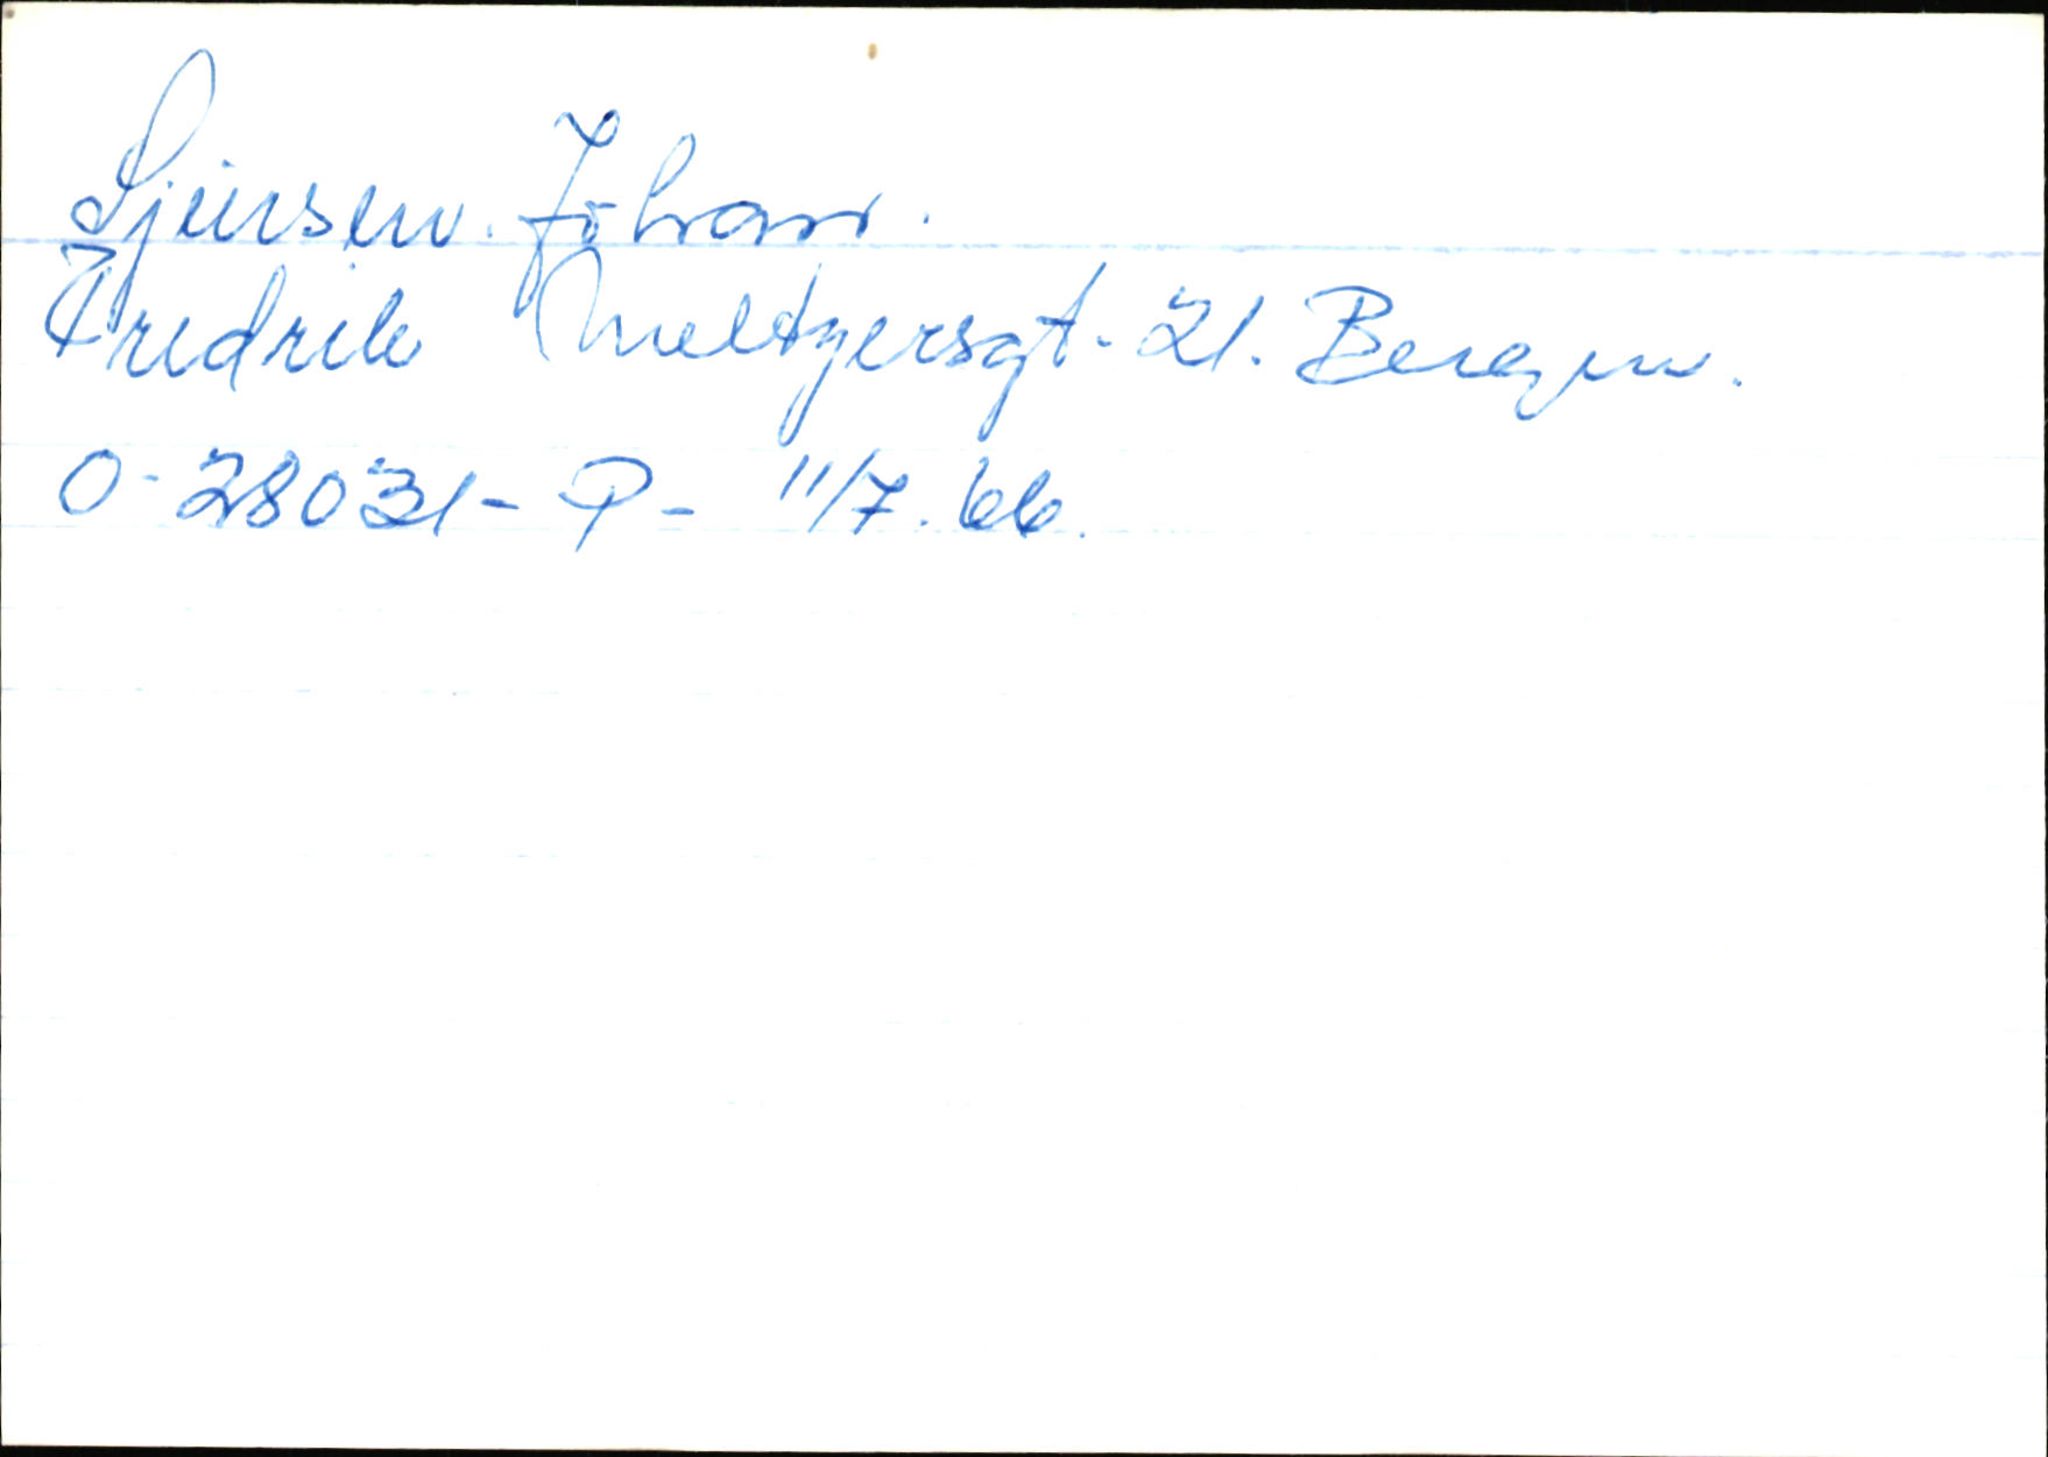 Sjursen. Johan.
Fredrik Meltzersgt. 21. Bergen.
O-28031- P- 11/7.66.